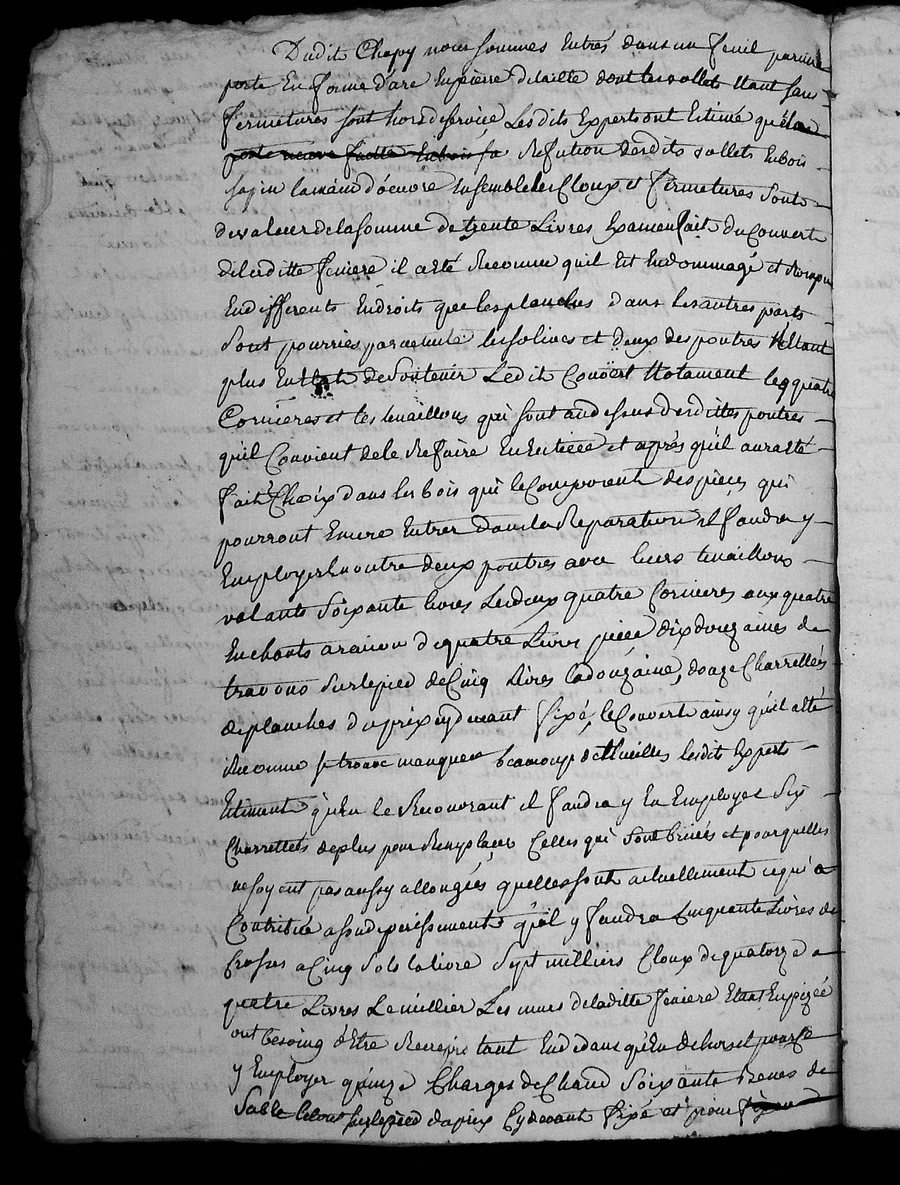 Dudit Chapy nous sommes Entrés dans un fenil par une
porte En forme d'arc En pierre de taille dont les vollets Etant sans
fermetures sont hors de service Les dits Experts ont Estimé qu'
porte neuve faitte En bois la Refution desdits vollets En bois
sapin la main d'oeuvre Ensemble les Cloux et fermetures Sont
de valeur de la somme de trente Livres Examen fait du Couvert
de laditte feniere il a eté Reconnu quil Est Endommagé et Rompu
En differents Endroits que les planches dans les autres parts
Sont pourries parmemte les solives et deux des poutres N'étant
plus En Etat de Soutenir Ledit Couvert Notament les quatre
Cornieres et les tenaillons qui sont au dessous desdittes poutres
quil Convient de le Refaire En Entiere et après qu'il aura eté
fait Choix dans les bois qui le Composent des pieces qui
pourront Encore Entrer dans la Reparation il faudra y
Employer En outre deux poutres avec leurs tenaillons
valants Soixante livres Les deux quatre Cornieres aux quatre
En chants a raison de quatre Livres piece dix douzaines de
travons Sur le pied de Cinq Livres la douzaine, douze Charrettées
de planches du prix cydevant fixé, le Couvert ainsy qu'il a eté
Reconnu se trouve manquer beaucoup de thuilles lesdits Experts
Estiment qu'En le Recouvrant il faudra y En Employer Six
Charrettées de plus pour Remplacer Celles qui Sont brisées et pour quelles
ne soyent pas aussy allongées quelles sont actuellement ce qui a
Contribué a son deperissement qu'il y faudra Cinquante Livres de
Crosses a Cinq Sols la livre Sept milliers Cloux de quatorze a
quatre Livres Le millier Les murs de laditte feniere Etant En pizée
ont besoing d'Etre Recrepis tant En dedans qu'En dehors et pour ce
y Employer quinze Charges de Chaud Soixante Benes de
Sable le tout sur le pied du prix Cydevant fixé et pour